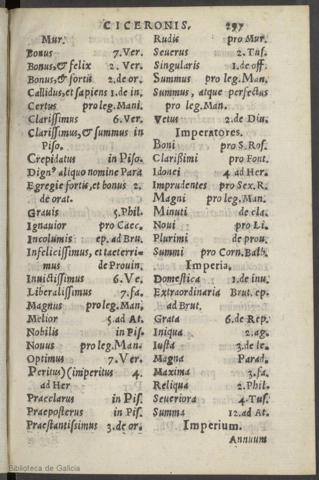 CICERONIS. 297
Mur.
Bonus 7. Ver.
Bonus, & felix 2. Ver.
Bonus, & fortis 2. de or.
Callidus, et sapiens 1. de in.
Certus pro leg. Mani.
Clarissimus 6. Ver.
Clarissimus, & summus in
Piso.
Crepidatus in Piso.
Dignꝰ aliquo nomine Para
Egregie fortis, et bonus 2.
de orat.
Grauis 5. Phil.
Ignauior pro Caec.
Incolumis ep. ad Bru.
Infelicissimus, et taeterri-
mus de Prouin.
Inuictissimus 6. Ve.
Liberalissimus 7. fa.
Magnus pro leg. Man.
Melior 5. ad At.
Nobilis in Pis.
Nouus pro leg. Man.
Optimus 7. Ver.
Peritus)(imperitus 4.
ad Her
Praeclarus in Pis.
Praeposterus in Pis.
Praestantissimus 3. de or.
Rudis pro Mur.
Seuerus 2. Tus.
Singularis 1. de off.
Summus pro leg. Man.
Summus, atque perfectus
pro leg. Man.
Vetus 2. de Diu.
Imperatores.
Boni pro S. Ros.
Clarissimi pro Font.
Idonei 4 ad Her.
Imprudentes pro Sex. R.
Magni pro leg. Man.
Minuti de cla.
Noui pro Li.
Plurimi de prou.
Summi pro Corn. Balb.
Imperia.
Domestica 1. de inu.
Extraordinaria Brut. ep.
ad Brut.
Grata 6. de Rep.
Iniqua 2. ag.
Iusta 3. de le.
Magna Parad.
Maxima 3. fa.
Reliqua 2. Phil.
Seueriora 4. Tus.
Summa 12. ad At.
Imperium.
Annuum
Biblioteca de Galicia